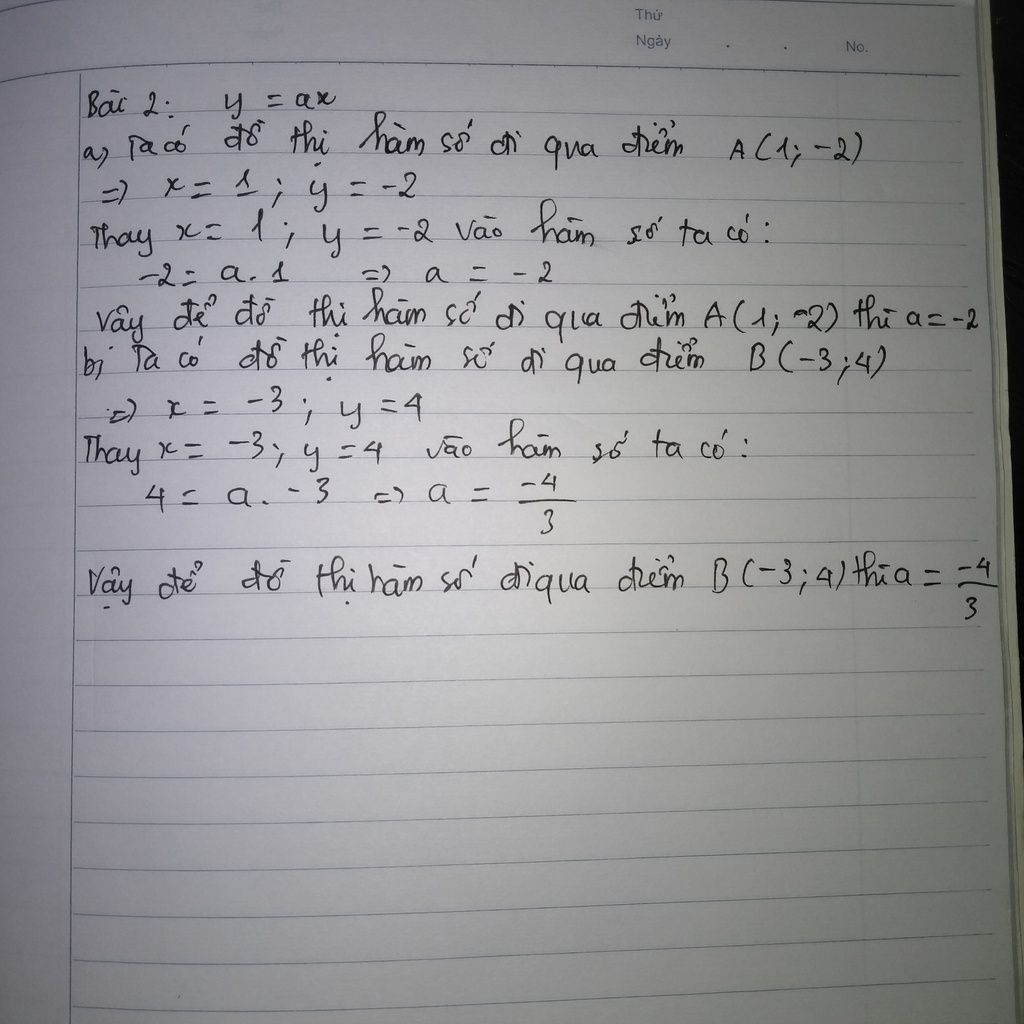 Thứ
Ngày . . No.
Bài 2: y = ax
a, Ta có đồ thị hàm số đi qua điểm A(1; -2)
=> x = 1; y = -2
Thay x = 1; y = -2 vào hàm số ta có:
-2 = a.1 => a = -2
Vậy để đồ thị hàm số đi qua điểm A(1; -2) thì a = -2
b, Ta có đồ thị hàm số đi qua điểm B(-3;4)
=> x = -3; y = 4
Thay x = -3; y = 4 vào hàm số ta có:
4 = a. -3 => a = -4/3
Vậy để đồ thị hàm số đi qua điểm B(-3;4) thì a = -4/3